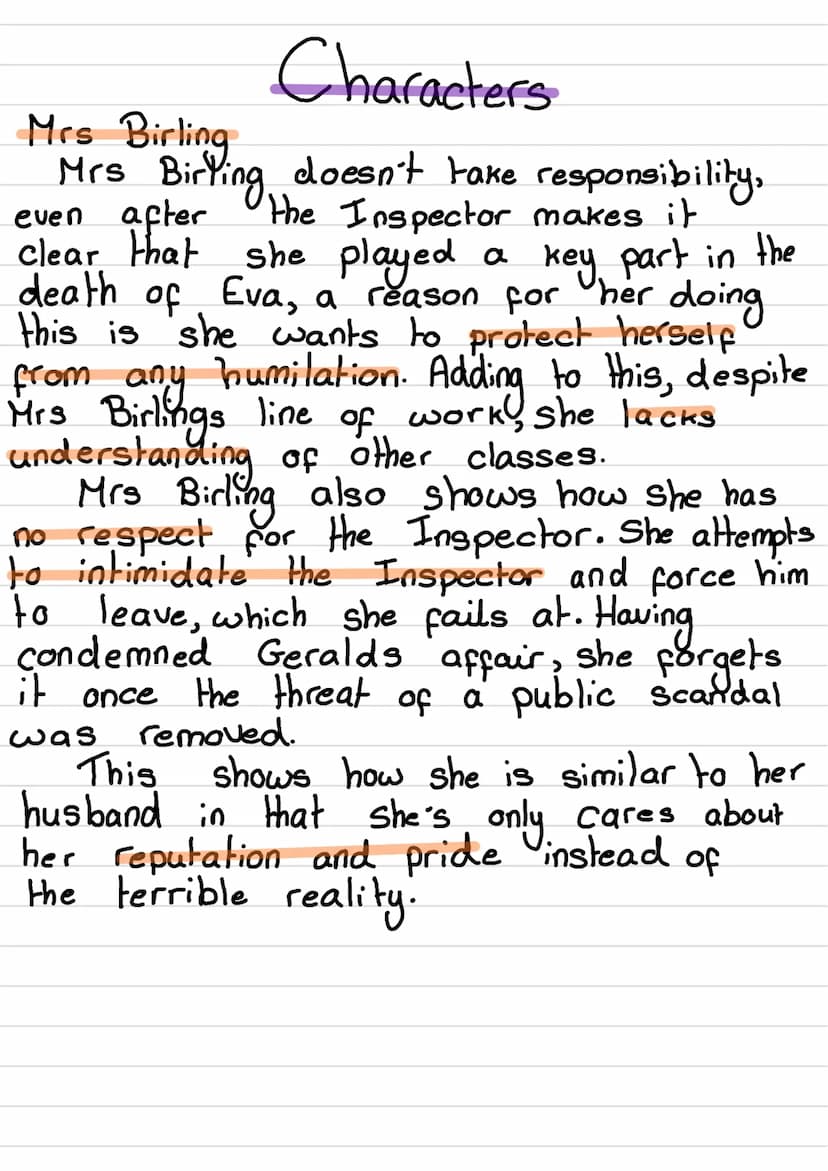 Characters
Mrs Birling
Mrs Birling doesn't take responsibility,
even after the Inspector makes it
clear that she played a key part in the
death of Eva, a reason for her doing
this is she wants to protect herself
from any humilation. Adding to this, despite
Mrs Birlings line of work, she lacks
understanding of other classes.
Mrs Birling also shows how she has
no respect for the Inspector. She attempts
to intimidate the Inspector and force him
to leave, which she fails at. Having
condemned Geralds affair, she forgets
it once the threat of a public scandal
was removed.
This shows how she is similar to her
husband in that she's only cares about
her reputation and pride instead of
the terrible reality.